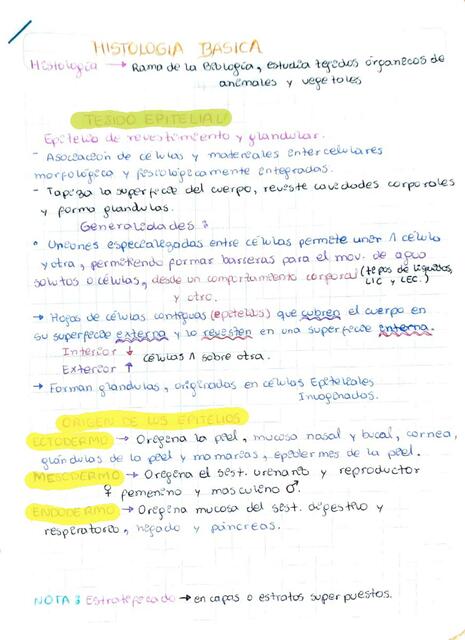 HISTOLOGIA BASICA
Histología → Rama de la Biología, estudia tejidos órganicos de
animales y vegetales
TEJIDO EPITELIAL
Epitelio de revestimiento y glandular.
- Asociación de células y materiales intercelulares
morfológica y fisiológicamente integradas.
- Tapiza la superficie del cuerpo, reviste cavidades corporales
y forma glandulas.
Generalidades:
• Uniones especialegadas entre células permite unir 1 célula
y otra, permitiendo formar barreras para el mov. de agua
solutos o células, desde un comportamiento corporal (tipos de liquidos,
y otro. LIC y LEC.)
→ Hojas de células contiguas (epitelios) que cubren el cuerpo en
su superficie externa y lo revisten en una superficie interna.
Interior ↓ células 1 sobre otra.
Exterior ↑
→ Forman glandulas, originados en células Epiteliales
Invaginadas.
ORIGEN DE LOS EPITELIOS
ECTODERMO → Origina la piel, mucosa nasal y bucal, cornea,
glándulas de la piel y mamarias, epidermes de la piel.
MESODERMO → Origina el sist. urinario y reproductor
♀ femenino y masculino ♂.
ENDODERMO → Origina mucosa del sist. digestivo y
respiratorio, higado y páncreas.
NOTA: Estratificado → en capas o estratos superpuestos.